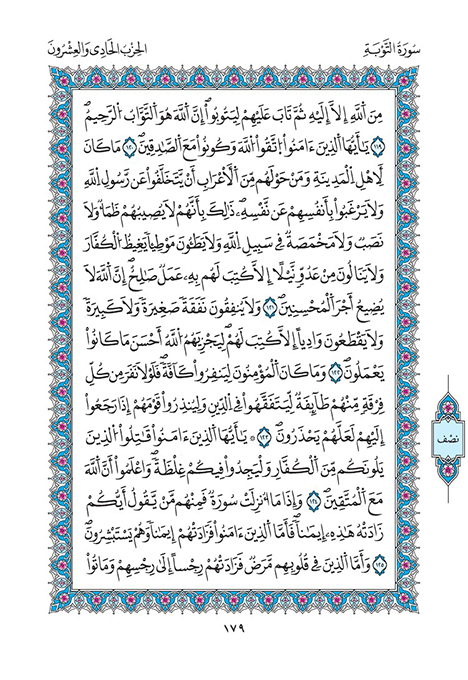 سُورَةُ التَّوْبَةِ
الحِزْبُ الحَادِي وَالعِشْرُونَ
مِنَ اَ۬للَّهِ إِلَّآ إِلَيْهِ ثُمَّ تَابَ عَلَيْهِمْ لِيَتُوبُوٓاْۖ إِنَّ اَ۬للَّهَ هُوَ اَ۬لتَّوَّابُ اُ۬لرَّحِيمُۖ
١١٩ يَٰٓأَيُّهَا اَ۬لذِينَ ءَامَنُواْ اُ۪تَّقُواْ اُ۬للَّهَ وَكُونُواْ مَعَ اَ۬لصَّٰدِقِينَۖ ١٢٠ مَا كَانَ
لِأَهْلِ اِ۬لْمَدِينَةِ وَمَنْ حَوْلَهُم مِّنَ اَ۬لْأَعْرَابِ أَنْ يَّتَخَلَّفُواْ عَن رَّسُولِ اِ۬للَّهِ
وَلَا يَرْغَبُواْ بِأَنفُسِهِمْ عَن نَّفْسِهِۦۖ ذَٰلِكَ بِأَنَّهُمْ لَا يُصِيبُهُمْ ظَمَأٌ وَلَا
نَصَبٌ وَلَا مَخْمَصَةٌ فِي سَبِيلِ اِ۬للَّهِ وَلَا يَطَـُٔونَ مَوْطِئاً يَغِيظُ اُ۬لْكُفَّارَ
وَلَا يَنَالُونَ مِنْ عَدُوّٖ نَّيْلاً اِلَّا كُتِبَ لَهُم بِهِۦ عَمَلٌ صَٰلِحٌۖ اِنَّ اَ۬للَّهَ لَا
يُضِيعُ أَجْرَ اَ۬لْمُحْسِنِينَۖ ١٢١ وَلَا يُنفِقُونَ نَفَقَةٗ صَغِيرَةٗ وَلَا كَبِيرَةٗ
وَلَا يَقْطَعُونَ وَادِياً اِلَّا كُتِبَ لَهُمْ لِيَجْزِيَهُمُ اُ۬للَّهُ أَحْسَنَ مَا كَانُواْ
يَعْمَلُونَۖ ١٢٢ وَمَا كَانَ اَ۬لْمُؤْمِنُونَ لِيَنفِرُواْ كَآفَّةٗۖ فَلَوْلَا نَفَرَ مِن كُلِّ
فِرْقَةٖ مِّنْهُمْ طَآئِفَةٞ لِّيَتَفَقَّهُواْ فِي اِ۬لدِّينِ وَلِيُنذِرُواْ قَوْمَهُمْ إِذَا رَجَعُوٓاْ
إِلَيْهِمْ لَعَلَّهُمْ يَحْذَرُونَۖ ١٢٣ ۞ يَٰٓأَيُّهَا اَ۬لذِينَ ءَامَنُواْ قَٰتِلُواْ اُ۬لذِينَ
يَلُونَكُم مِّنَ اَ۬لْكُفَّارِ وَلْيَجِدُواْ فِيكُمْ غِلْظَةٗۖ وَاعْلَمُوٓاْ أَنَّ اَ۬للَّهَ
مَعَ اَ۬لْمُتَّقِينَۖ ١٢٤ وَإِذَا مَآ أُنزِلَتْ سُورَةٞ فَمِنْهُم مَّنْ يَّقُولُ أَيُّكُمْ
زَادَتْهُ هَٰذِهِۦٓ إِيمَٰناٗۖ فَأَمَّا اَ۬لذِينَ ءَامَنُواْ فَزَادَتْهُمْ إِيمَٰناٗ وَهُمْ يَسْتَبْشِرُونَۖ
١٢٥ وَأَمَّا اَ۬لذِينَ فِي قُلُوبِهِم مَّرَضٞ فَزَادَتْهُمْ رِجْساً اِلَىٰ رِجْسِهِمْ وَمَاتُواْ
نصف
١٧٩